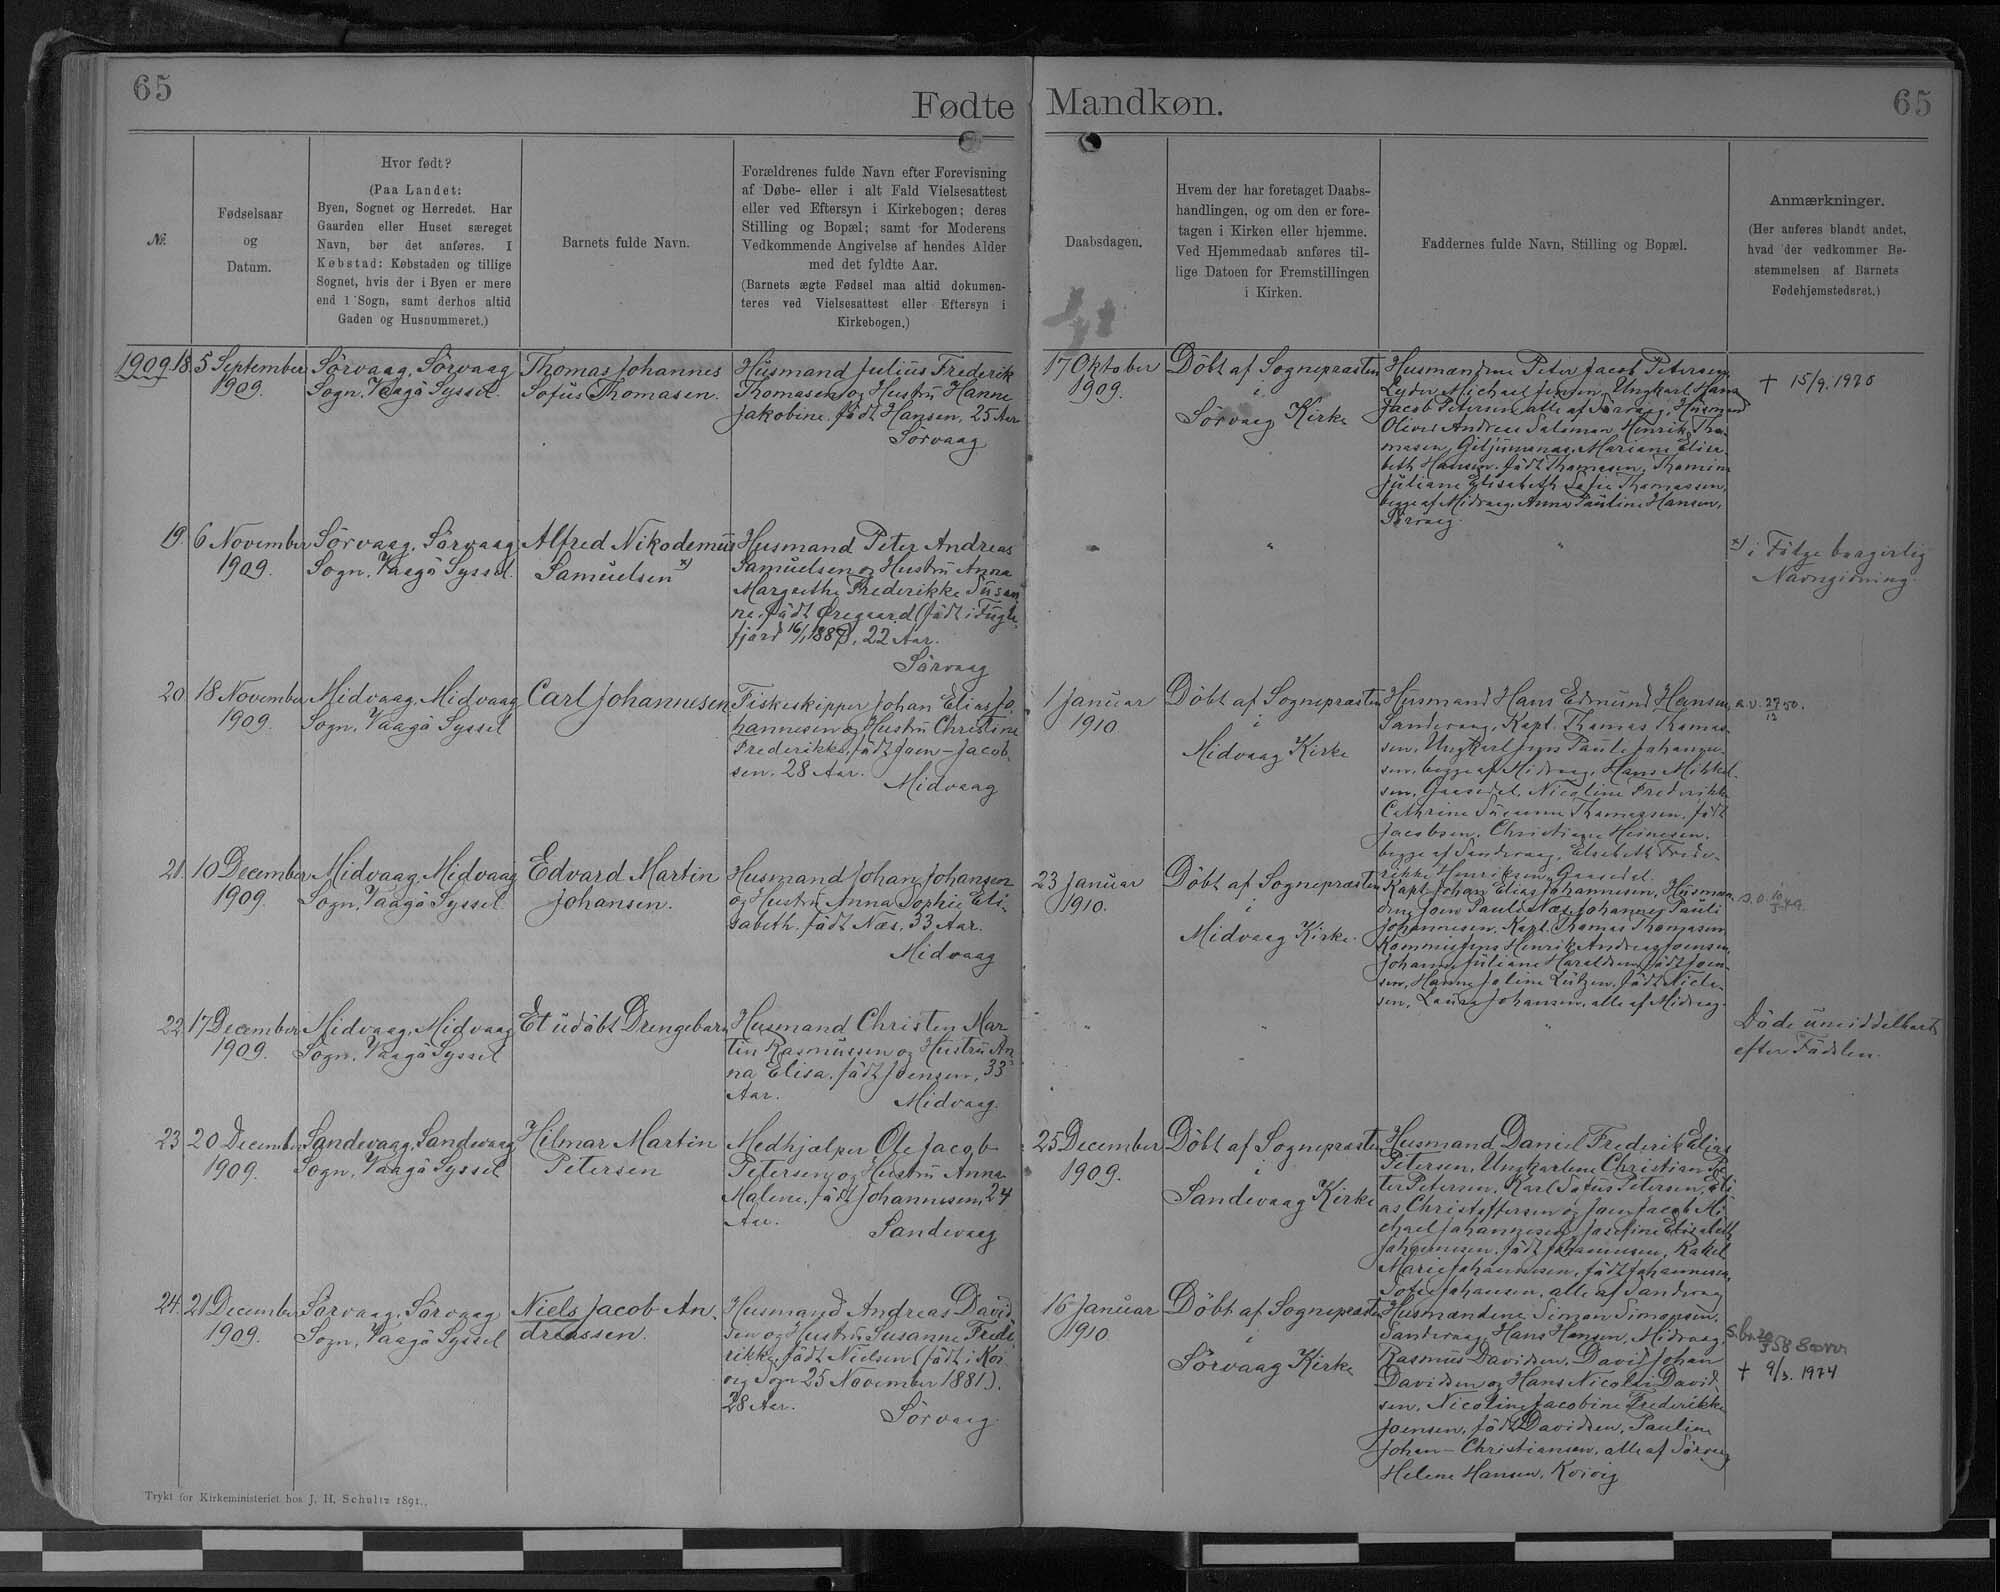 65
Fødte
Mandkøn.
65
№.
Fødselsaar
og
Datum.
Hvor født?
(Paa Landet:
Byen, Sognet og Herredet. Har
Gaarden eller Huset særeget
Navn, bør det anføres. I
Købstad: Købstaden og tillige
Sognet, hvis der i Byen er mere
end 1 Sogn, samt derhos altid
Gaden og Husnummeret.)
Barnets fulde Navn.
Forældrenes fulde Navn efter Forevisning
af Døbe- eller i alt Fald Vielsesattest
eller ved Eftersyn i Kirkebogen; deres
Stilling og Bopæl; samt for Moderens
Vedkommende Angivelse af hendes Alder
med det fyldte Aar.
(Barnets ægte Fødsel maa altid dokumen-
teres ved Vielsesattest eller Eftersyn i
Kirkebogen.)
Daabsdagen.
Hvem der har foretaget Daabs-
handlingen, og om den er fore-
tagen i Kirken eller hjemme.
Ved Hjemmedaab anføres til-
lige Datoen for Fremstillingen
i Kirken.
Faddernes fulde Navn, Stilling og Bopæl.
Anmærkninger.
(Her anføres blandt andet,
hvad der vedkommer Be-
stemmelsen af Barnets
Fødehjemstedsret.)
1909. 18.
5 September
1909.
Sörvaag, Sörvaag
Sogn, Vaagö Syssel.
Thomas Johannes
Sofus Thomasen.
Husmand Julius Frederik
Thomasen og Hustru Hanne
Jakobine, födt Hansen, 25 Aar
Sörvaag
17 Oktober
1909.
Döbt af Sognepræsten
i
Sörvaag Kirke
Husmændene Peter Jacob Petersen,
Michael Jensen, Ungkarl Hans
Jacob Petersen, alle af Sörvaag, Husmand
Oliver Andreas Salomon Henrik Tho-
masen, Mariane Elisa-
beth Hansen, födt Thomasen, Thomine
Juliane Elisabeth Sofie Thomassen,
begge af Midvaag, Anna Pauline Hansen,
Sörvaag.
† 15/9. 1970
19.
6 November
1909.
Sörvaag, Sörvaag
Sogn, Vaagö Syssel.
Alfred Nikodemus
Samuelsen x)
Husmand Peter Andreas
Samuelsen og Hustru Anna
Margrethe Frederikke Susan-
ne, födt Øregaard (födt i Fugle-
fjord 16/1 1887), 22 Aar.
Sörvaag
"
"
x) i Fölge borgerlig
Navngivning.
20.
18 November
1909.
Midvaag, Midvaag
Sogn, Vaagö Syssel
Carl Johannesen
Fiskeskipper Johan Elias Jo-
hannesen og Hustru Christine
Frederikke, födt Joen-Jacob-
sen, 28 Aar.
Midvaag
1 Januar
1910.
Döbt af Sognepræsten
i
Midvaag Kirke
Husmand Hans Edmund Hansen,
Sandevaag, Kapt. Thomas Thomas-
sen, Ungkarl Jens Pauli Johanne-
sen, begge af Midvaag, Hans Mikkel-
sen, Gaasedal, Nicoline Frederikke
Cathrine Susanne Thomassen, födt
Jacobsen, Christiane Heinesen,
begge af Sandevaag, Elsebeth Frede-
rikke Henriksen, Gaasedal.
a.v. 27/12 50.
21.
10 December
1909.
Midvaag, Midvaag
Sogn, Vaagö Syssel
Edvard Martin
Johansen.
Husmand Johan Johansen
og Hustru Anna Sophie Eli-
sabeth, födt Næs, 33 Aar.
Midvaag
23 Januar
1910.
Döbt af Sognepræsten
i
Midvaag Kirke.
Kapt. Johan Elias Johannesen, Husmæn-
dene Joen Pauli Næs, Johannes Pauli
Johannesen, Kapt. Thomas Thomasen,
Kommis Jens Henrik Andreas Joensen,
Johanne Juliane Haraldsen, födt Joen-
sen, Hanne Joline Lützen, födt Niel-
sen, Laura Johansen, alle af Midvaag.
22.
17 December
1909.
Midvaag, Midvaag
Sogn, Vaagö Syssel
Et udöbt Drengebarn
Husmand Christen Mar-
tin Rasmussen og Hustru An-
na Elisa, födt Joensen, 33
Aar.
Midvaag.
"
"
"
Döde umiddelbart
efter Födslen.
23
20 December
1909.
Sandevaag, Sandevaag
Sogn, Vaagö Syssel
Hilmar Martin
Petersen
Medhjælper Ole Jacob
Petersen og Hustru Anna
Malene, födt Johannesen, 24
Aar.
Sandevaag
25 December
1909.
Döbt af Sognepræsten
i
Sandevaag Kirke
Husmand Daniel Frederik Elias
Petersen, Ungkarlene Christian Pe-
ter Petersen, Karl Sofus Petersen, Eli-
as Christoffersen og Joen Jacob Mi-
chael Johannesen, Josefine Elisabeth
Johannesen, födt Johannesen, Rakel
Marie Johannesen, födt Johannesen,
Sofie Johansen, alle af Sandevaag
24.
21 December
1909.
Sörvaag, Sörvaag
Sogn, Vaagö Syssel
Niels Jacob An-
dreassen.
Husmand Andreas David-
sen og Hustru Susanne Frede-
rikke, födt Nielsen (födt i Kvi-
vig Sogn 25 November 1881).
28 Aar.
Sörvaag.
16 Januar
1910.
Döbt af Sognepræsten
i
Sörvaag Kirke
Husmændene Simon Simonsen,
Sandevaag, Hans Hansen, Midvaag,
Rasmus Davidsen, David Johan
Davidsen og Hans Nicolai David-
sen, Nicoline Jacobine Frederikke
Joensen, födt Davidsen, Pauline
Johan-Christiansen, alle af Sörvaag,
Helene Hansen, Kvivig
† 9/3. 1974
Trykt for Kirkeministeriet hos J. H. Schultz 1891.